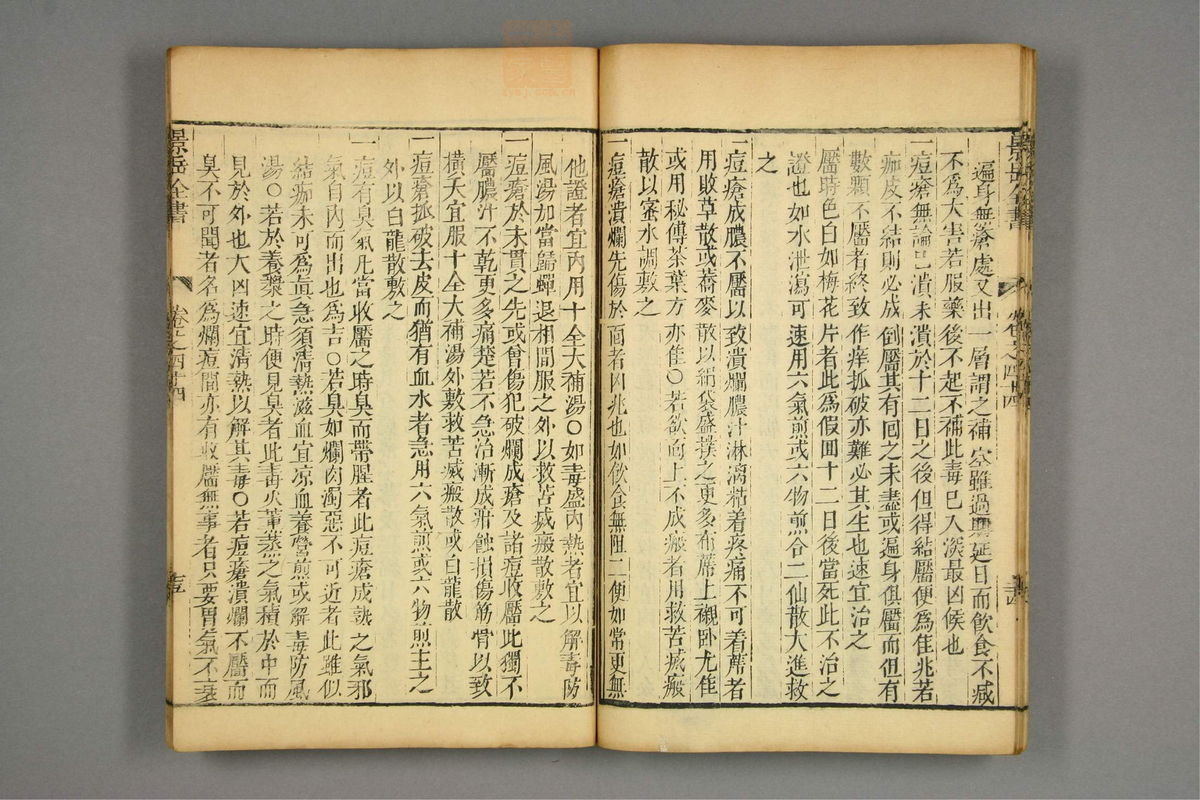 遍身無瘡處又出一層謂之補空雖過期延日而飲食不减
不爲大害若服藥後不起不補此毒已入深最凶候也
一痘瘡無論已潰未潰於十二日之後但得結靨便爲佳兆若
痂皮不結則必成倒靨其有回之未盡或遍身俱靨而但有
數顆不靨者終致作痒抓破亦難必其生也速宜治之
靨時色白如梅花片者此爲假回十二日後當死此不治之
證也如水泄瀉可速用六氣煎或六物煎合二仙散大進救
之
一痘瘡成膿不靨以致潰爛膿汁淋漓粘着疼痛不可着蓆者
用敗草散或蕎麥散以絹袋盛撲之更多布蓆上襯卧尤佳
或用秘傳茶葉方亦佳○若欲面上不成瘢者用救苦滅瘢
散以蜜水調敷之
一痘瘡潰爛先傷於面者凶兆也如飲食無阻二便如常更無
他證者宜內用十全大補湯○如毒盛內熱者宜以解毒防
風湯加當歸蟬退相間服之外以救苦滅瘢散敷之
一痘瘡於未貫之先或曾傷犯破爛成瘡及諸痘收靨此獨不
靨膿汁不乾更多痛楚若不急治漸成疳蝕損傷筋骨以致
橫夭宜服十全大補湯外敷救苦滅瘢散或白龍散
一痘瘡抓破去皮而猶有血水者急用六氣煎或六物煎主之
外以白龍散敷之
一痘有臭氣凡當收靨之時臭而帶腥者此痘瘡成熟之氣邪
氣自內而出也爲吉○若臭如爛肉濁惡不可近者此雖似
結痂未可爲眞急須淸熱滋血宜凉血養營煎或解毒防風
湯○若於養漿之時便見臭者此毒火薰蒸之氣積於中而
見於外也大凶速宜淸熱以解其毒○若痘瘡潰爛不靨而
臭不可聞者名爲爛痘間亦有收靨無事者只要胃氣不衰
景岳全書
卷之四十四
景岳全書
卷之四十四